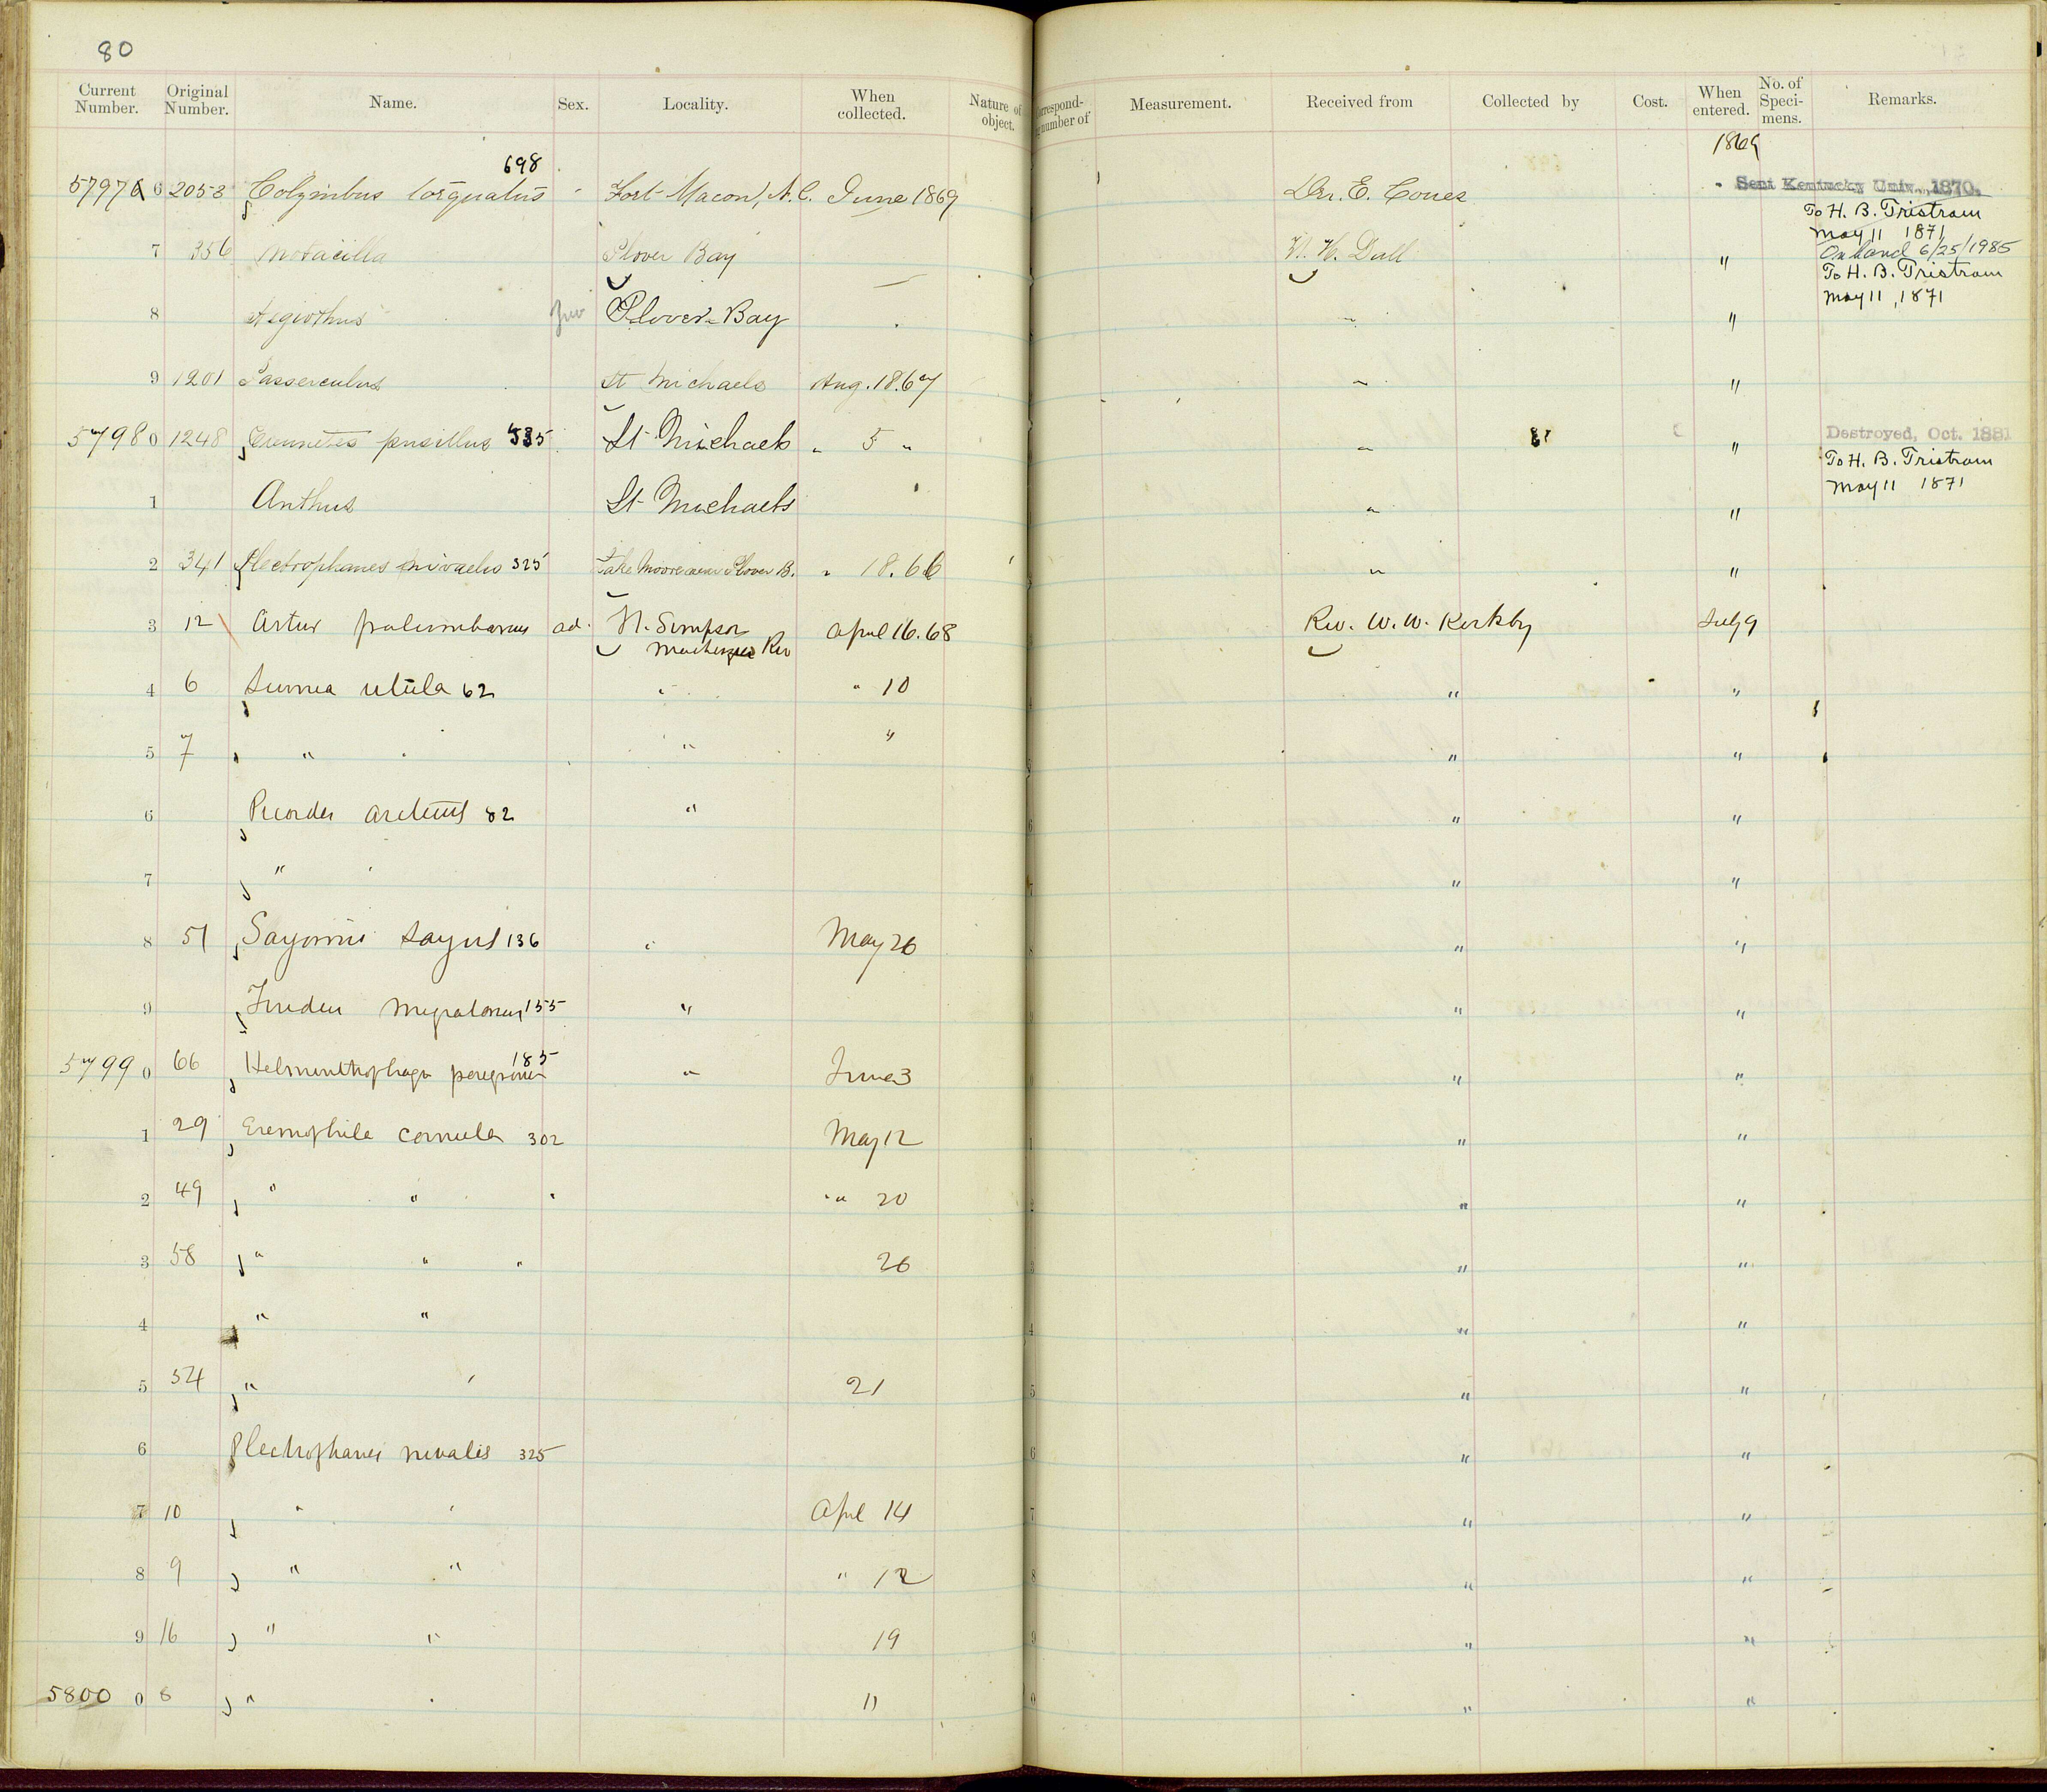 80
Current Number. Original Number. Name. Sex. Locality. When collected. Nature of object. Correspond- number of Measurement. Received from Collected by Cost. When entered. No. of Speci- mens. Remarks.
1869
698
57976 2053 Colymbus torquatus Fort Macon, N.C. June 1869 Dr. E. Coues Sent Kentucky Univ., 1870.
To H. B. Tristram
May 11 1871
7 356 Motacilla Plover Bay W. H. Dall " On hand 6/25/1985
To H. B. Tristram
May 11, 1871
8 Aegiothus Juv Plover Bay " "
9 1201 Passerculus St Michaels Aug. 18.67 " "
57980 1248 Ereunetes pusillus 535 St Michaels " 5 " " " Destroyed, Oct. 1881
To H. B. Tristram
May 11 1871
1 Anthus St Michaels " "
2 341 Plectrophanes nivalis 325 Lake Moore near Plover B. " 18.66 " "
3 12 Astur palumbarius ad. Ft. Simpson April 16.68 Rev. W. W. Kirkby July 9
Mackenzie Riv
4 6 Surnia ulula 62 " " 10 " "
5 7 " " " " " "
6 Picoides arcticus 82 " " "
7 " " "
8 51 Sayornis sayus 136 " May 26 " "
9 Turdus migratorius 155 " " "
185
57990 66 Helminthophaga peregrina " June 3 " "
1 29 Eremophila cornuta 302 May 12 " "
2 49 " " " 20 " "
3 58 " " 26 " "
4 " " " "
5 54 " ' 21 " "
6 Plectrophanes nivalis 325 " "
7 10 " ' Apl 14 " "
8 9 " " " 12 " "
9 16 " " 19 " "
5800 0 8 " 11 " "